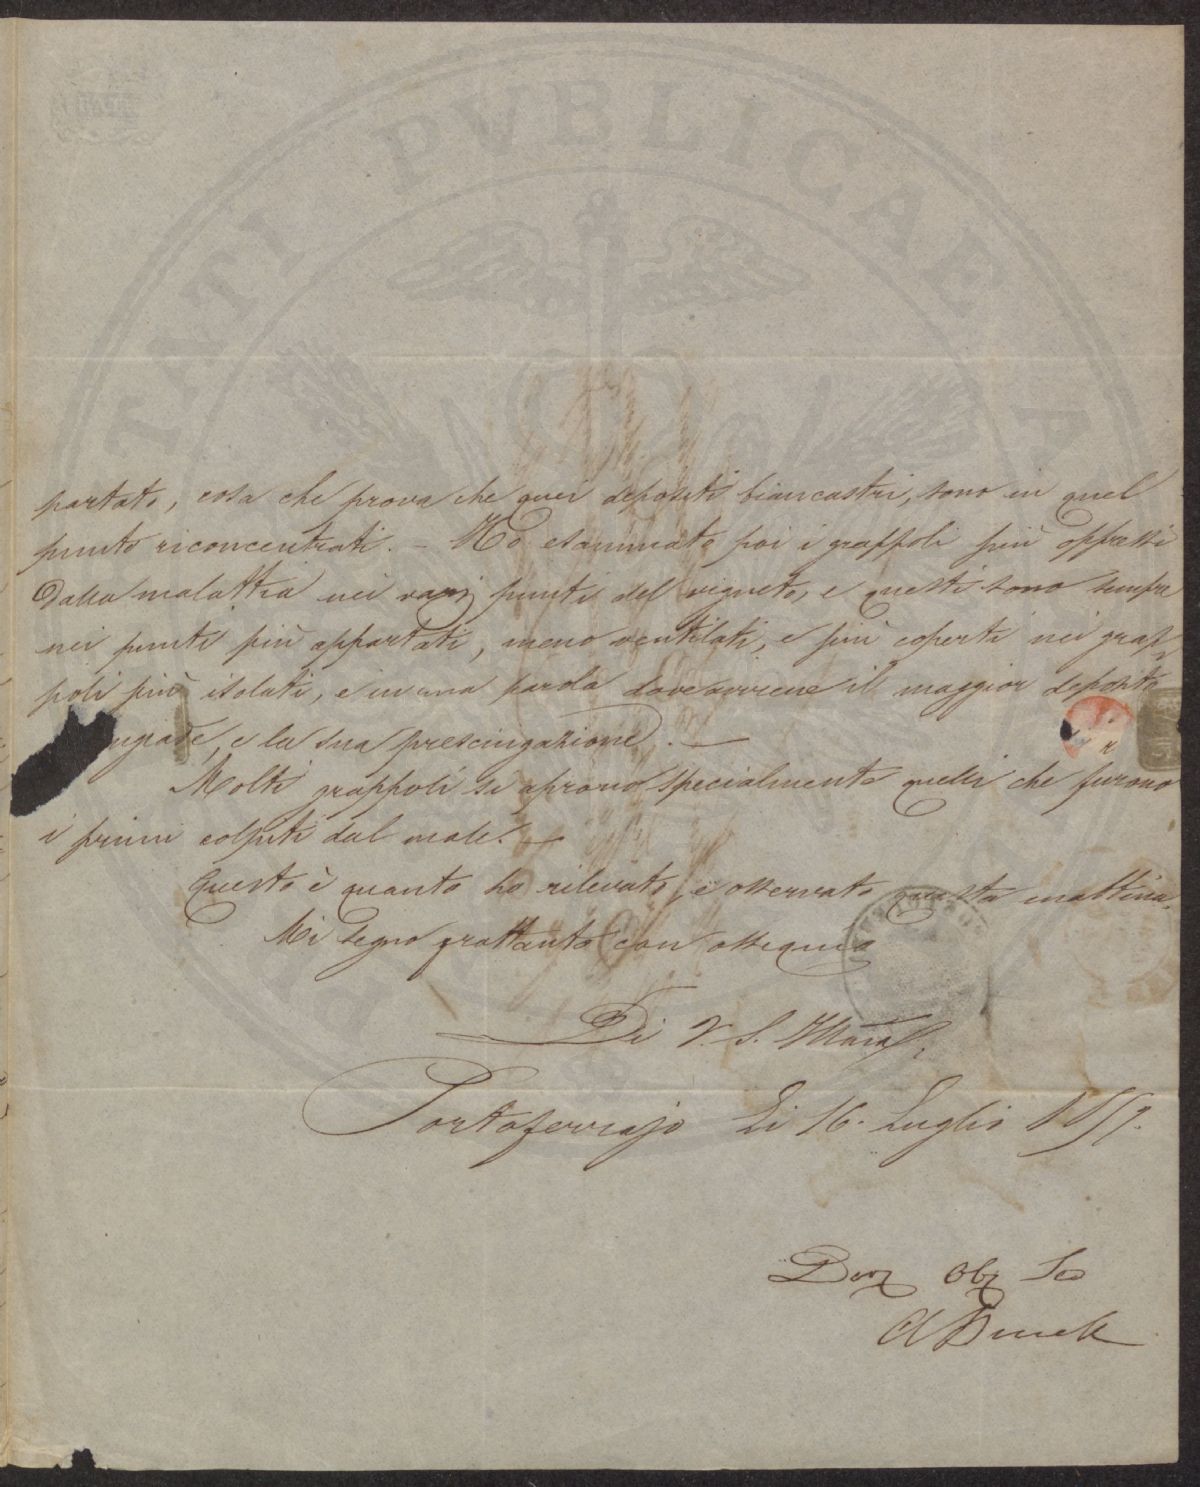 partato, cosa che prova che quei depositi biancastri, sono in quel
punto riconcentrati. – Ho esaminato poi i grappoli più oppressi
dalla malattia nei varj punti del vigneto, e questi sono sempre
nei punti più appartati, meno ventilati, e più coperti nei grap,
poli più isolati, e in una parola dove avviene il maggior deposito
e la sua
Molti grappoli si aprono specialmente quelli che furono
i primi colpiti dal male. –
Questo è quanto ho rilevato, e osservato questa mattina.
Mi segno frattanto con ossequio
Di V. S. Illma
Portoferrajo Li 16. Luglio
Obb
TATI PVBLICAE A